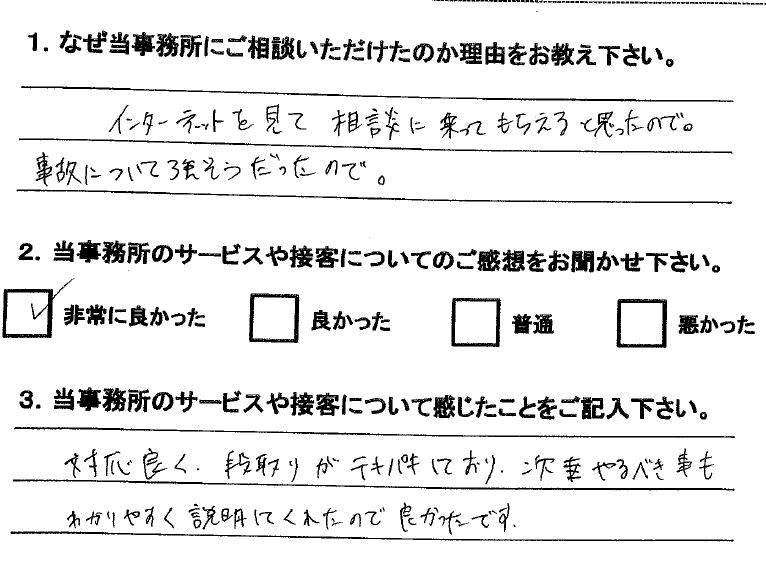 1. なぜ当事務所にご相談いただけたのか理由をお教え下さい。
インターネットを見て 相談に乗ってもらえると思ったので。
事故について強そうだったので。
2. 当事務所のサービスや接客についてのご感想をお聞かせ下さい。
非常に良かった 良かった 普通 悪かった
3. 当事務所のサービスや接客について感じたことをご記入下さい。
対応良く、段取りがテキパキしており、次やるべき事も
わかりやすく説明してくれたので良かったです。